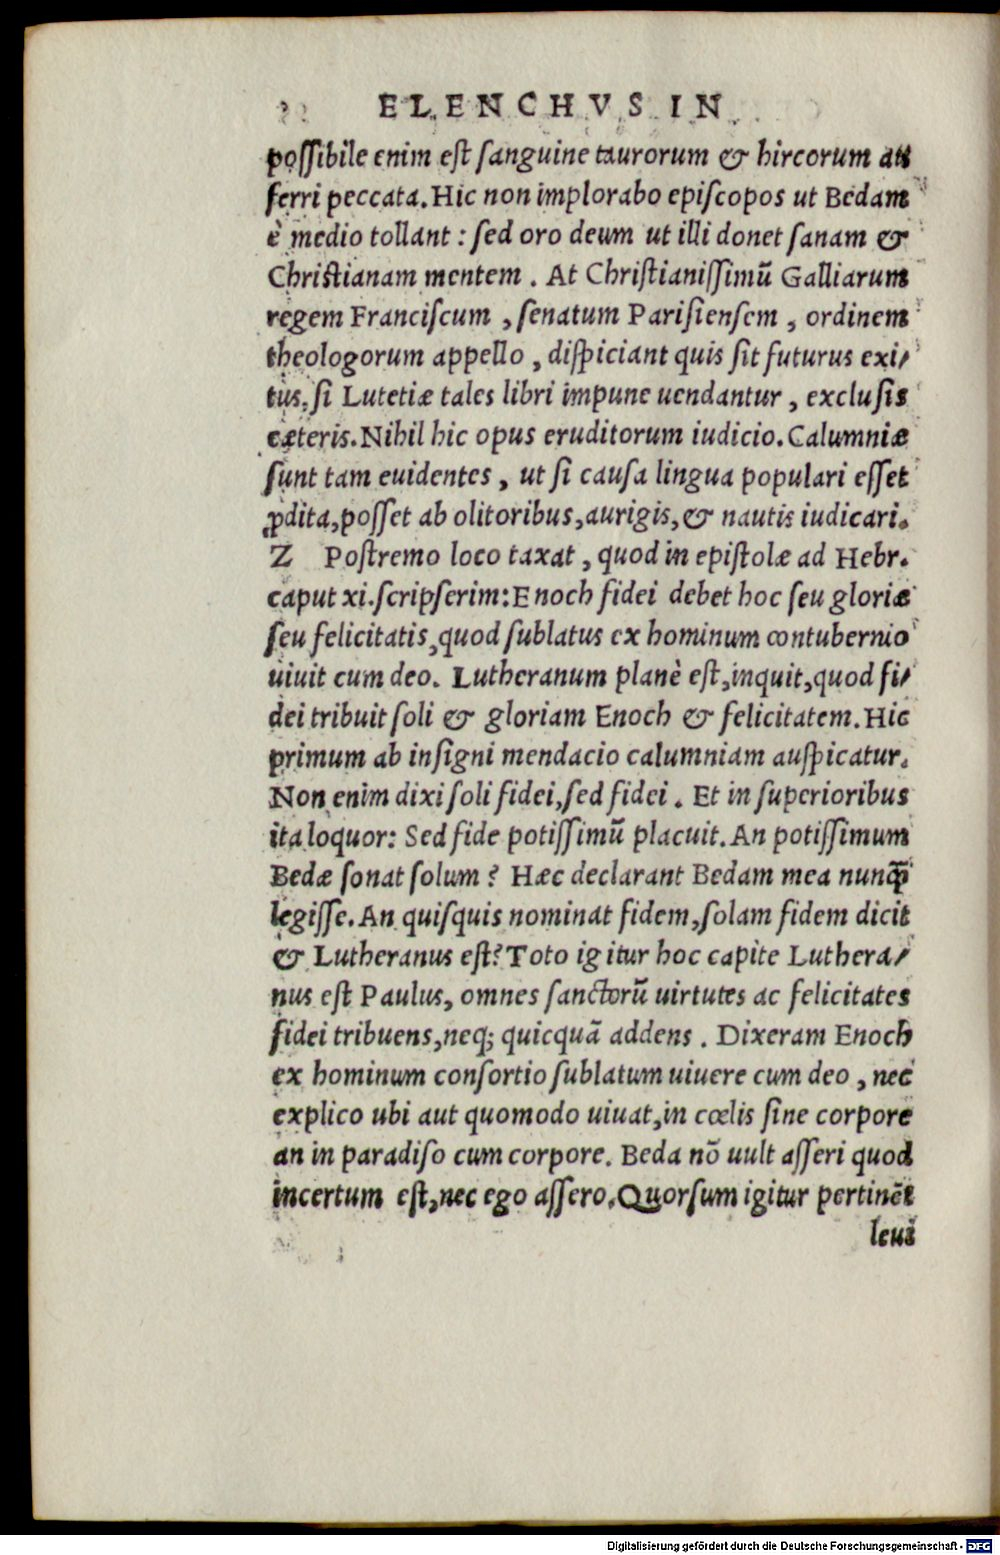 ELENCHVS IN
possibile enim est sanguine taurorum & hircorum au
ferri peccata. Hic non implorabo episcopos ut Bedam
è medio tollant : sed oro deum ut illi donet sanam &
Christianam mentem . At Christianissimū Galliarum
regem Franciscum , senatum Parisiensem , ordinem
theologorum appello , dispiciant quis sit futurus exi/
tus, si Lutetiæ tales libri impune uendantur , exclusis
cæteris. Nihil hic opus eruditorum iudicio. Calumniæ
sunt tam euidentes , ut si causa lingua populari esset
ꝓdita, posset ab olitoribus, aurigis, & nautis iudicari.
Z Postremo loco taxat , quod in epistolæ ad Hebr.
caput xi. scripserim: Enoch fidei debet hoc seu gloriæ
seu felicitatis, quod sublatus ex hominum contubernio
uiuit cum deo. Lutheranum planè est, inquit, quod fi/
dei tribuit soli & gloriam Enoch & felicitatem. Hic
primum ab insigni mendacio calumniam auspicatur.
Non enim dixi soli fidei, sed fidei . Et in superioribus
ita loquor: Sed fide potissimū placuit. An potissimum
Bedæ sonat solum ? Hæc declarant Bedam mea nunꝗ̃
legisse. An quisquis nominat fidem, solam fidem dicit
& Lutheranus est? Toto igitur hoc capite Luthera/
nus est Paulus, omnes sanctorū uirtutes ac felicitates
fidei tribuens, neq; quicquā addens . Dixeram Enoch
ex hominum consortio sublatum uiuere cum deo , nec
explico ubi aut quomodo uiuat, in cœlis sine corpore
an in paradiso cum corpore. Beda nō uult asseri quod
incertum est, nec ego assero. Quorsum igitur pertinēt
leui
Digitalisierung gefördert durch die Deutsche Forschungsgemeinschaft - DFG